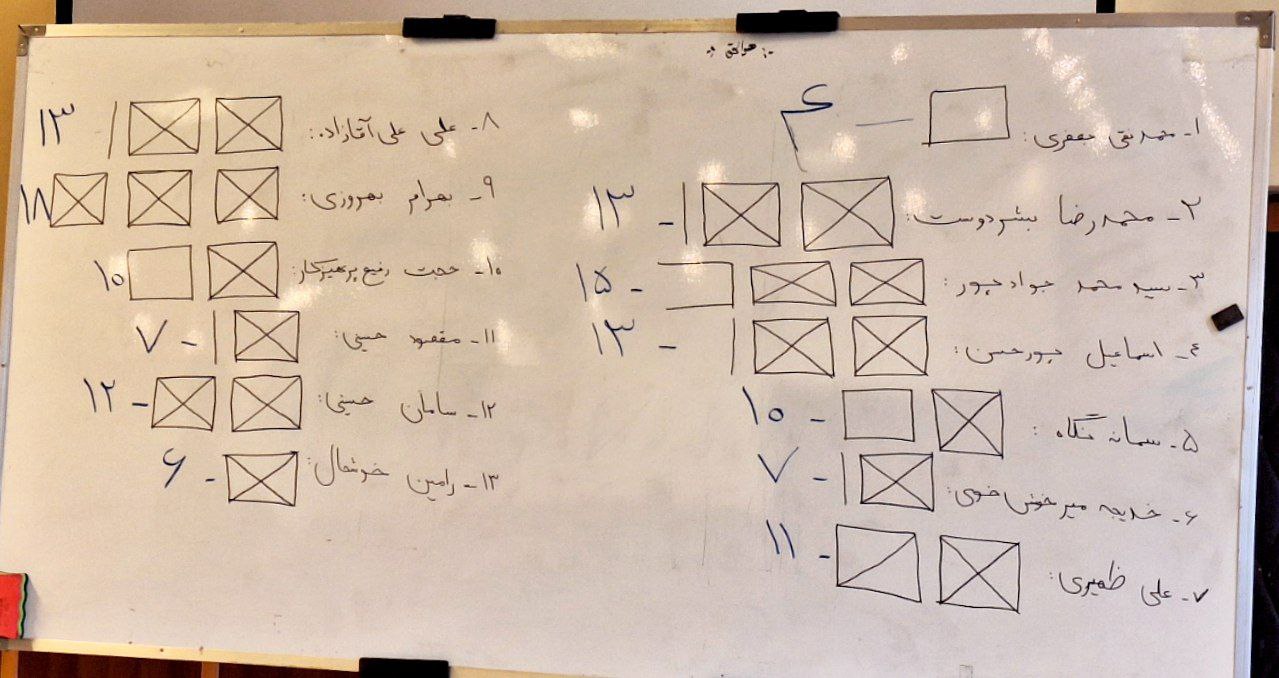 ۱- محمد تقی جعفری: — ۴
۲- محمدرضا بشردوست: - ۱۳
۳- سید محمد جوادپور: - ۱۵
۴- اسماعیل پورحسن: - ۱۳
۵- سمانه نگاه: - ۱۰
۶- خدیجه میرخوش خوی: - ۷
۷- علی ظهیری: - ۱۱
۸- علی علی آقازاده: ۱۳
۹- بهرام بهروزی: ۱۸
۱۰- حجت رفیع پرهیزکار: ۱۰
۱۱- مقصود حسینی: - ۷
۱۲- سامان حسینی: - ۱۲
۱۳- رامین خوشحال: - ۶